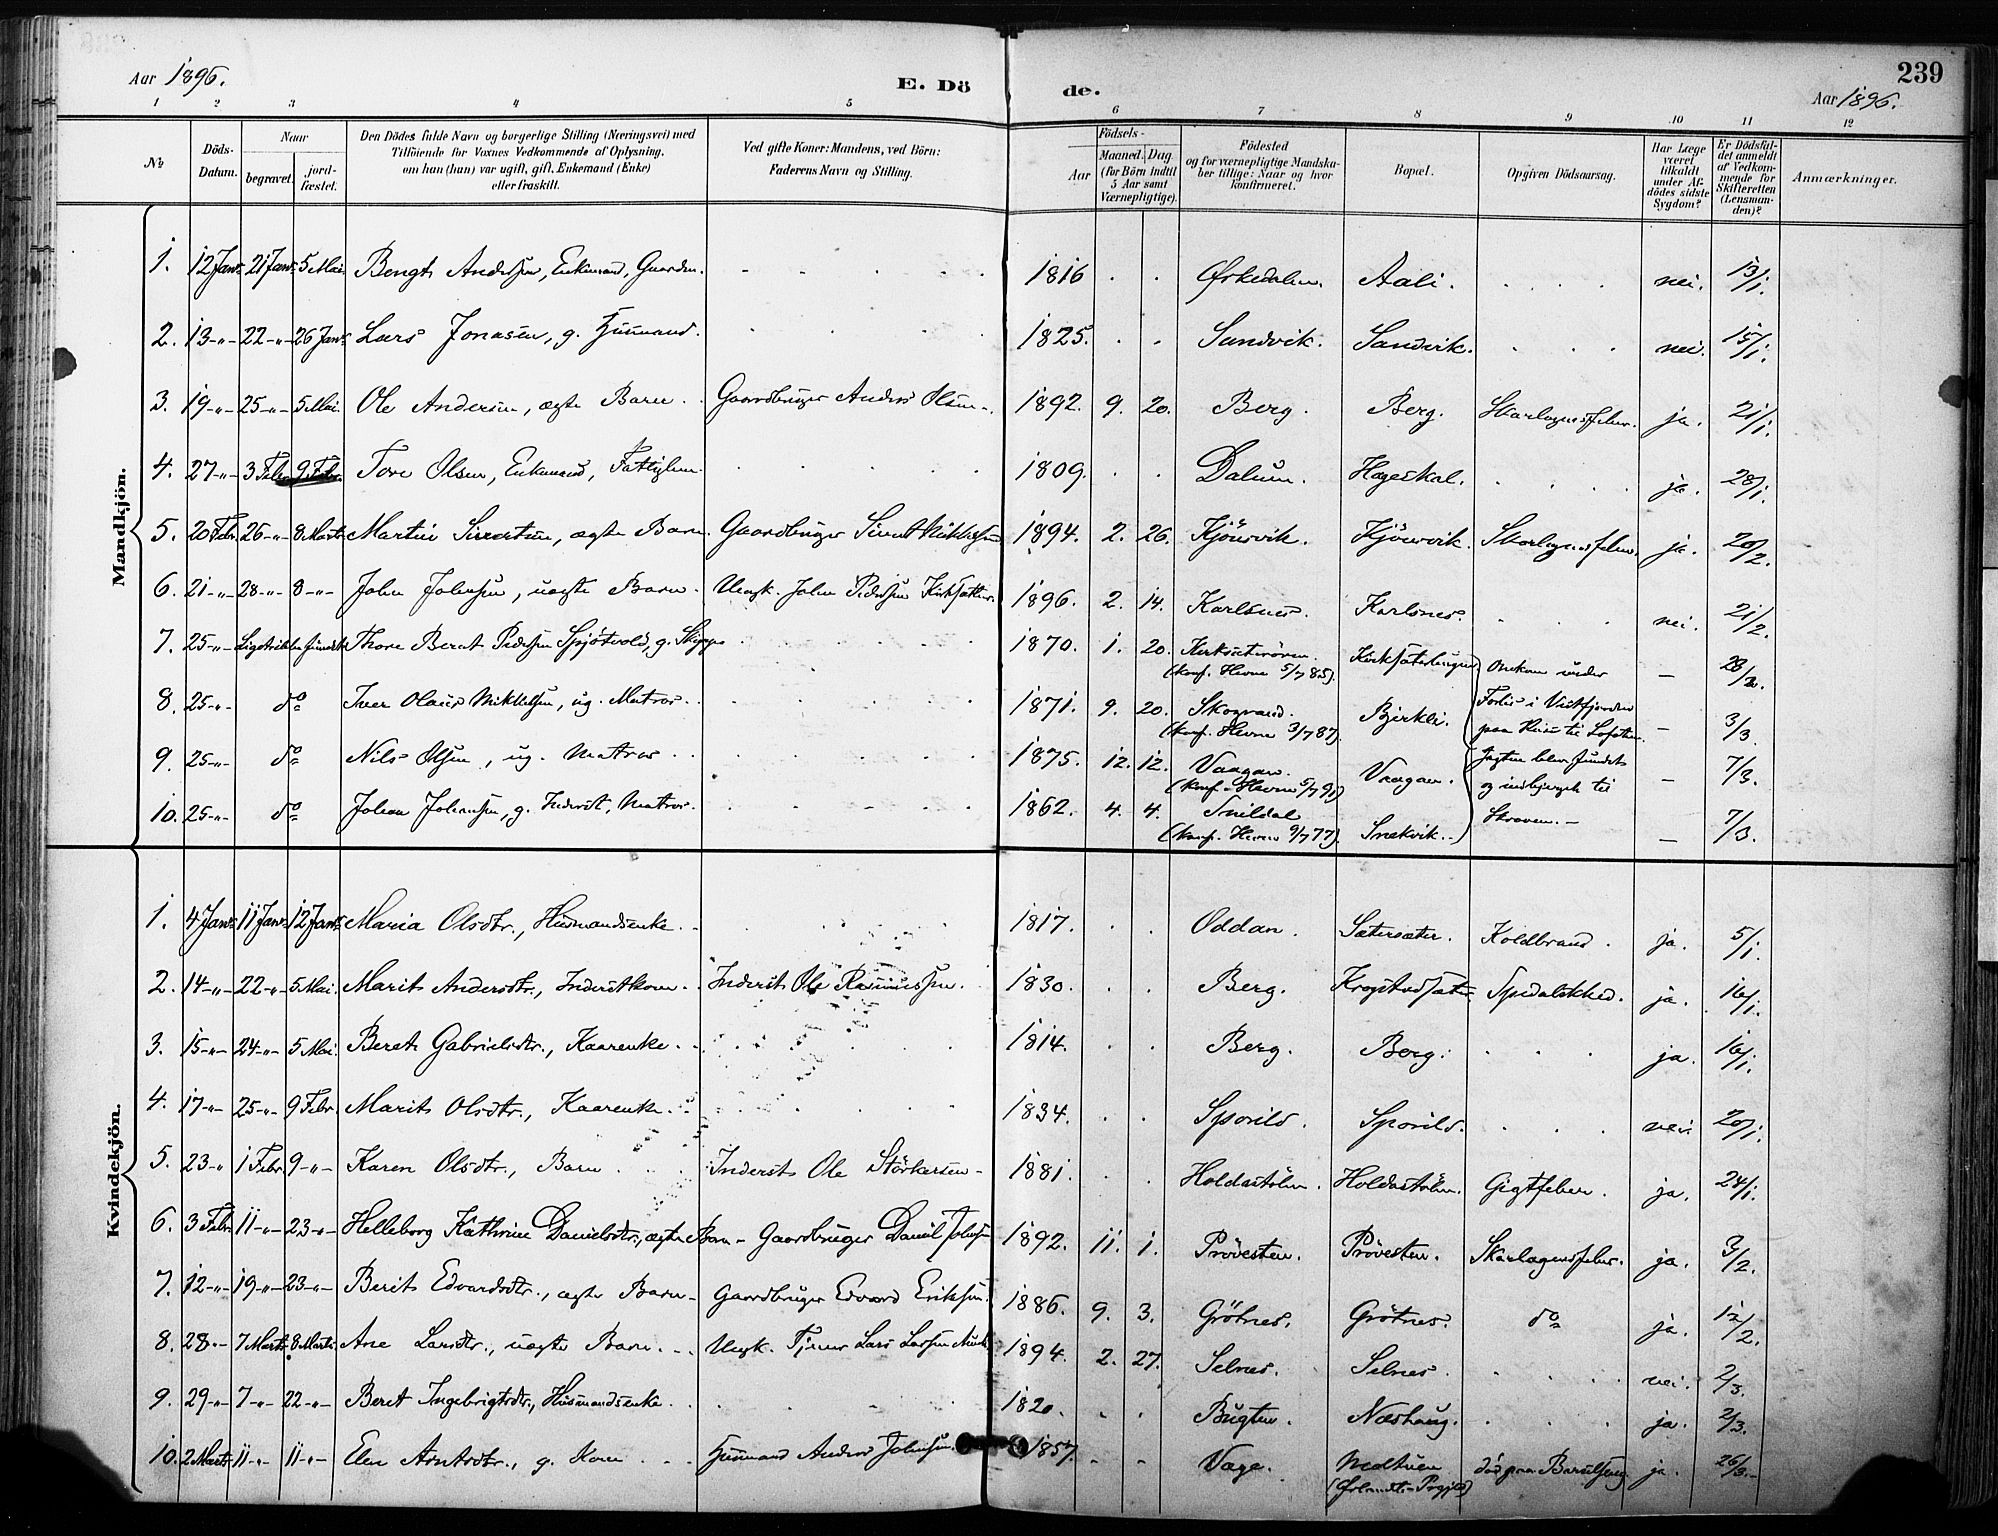 Aar 1896. E. Dö de. Aar 1896. 239
1 2 3 4 5 6 7 8 9 10 11 12
№ Döds-Datum. Naar begravet. jordfæstet. Den Dödes fulde Navn og borgerlige Stilling (Næringsvei) med Tilföiende for Voxnes Vedkommende af Oplysning, om han (hun) var ugift, gift, Enkemand (Enke) eller fraskilt. Ved gifte Koner: Mandens, ved Börn: Faderens Navn og Stilling. Födsels- Aar Maaned. Dag. (for Börn indtil 5 Aar samt Værnepligtige). Födested og for værnepligtige Mandskaber tillige: Naar og hvor konfirmeret. Bopæl. Opgiven Dödsaarsag. Har Læge været tilkaldt under Afdödes sidste Sygdom? Er Dödsfaldet anmeldt af Vedkommende for Skifteretten (Lensmanden)? Anmærkninger.
Mandkjön.
1. 12 Janr. 21 Janr. 5 Mai. Bengt Andersen, Enkemand, Gaardm. 1816 Ørkedalen. Aali. nei. 13/1.
2. 13 -"- 22 -"- 26 Janr. Lars Jonasen, g. Husmand. 1825. Sandvik. Sandvik. nei. 15/1.
3. 19 -"- 25 -"- 5 Mai. Ole Andersen, ægte Barn. Gaardbruger Anders Olsen. 1892. 9. 20. Berg. Berg. Skarlagensfeber. ja. 21/1.
4. 27 -"- 3 Febr. 9 Febr. Tore Olsen, Enkemand, Fattiglem. 1809. Dalum. Hageskal. ja. 28/1.
5. 20 Febr. 26 -"- 8 Marts Martin Sivertsen, ægte Barn. Gaardbruger Sivert Mikkelsen 1894. 2. 26. Kjörsvik. Kjörsvik. Skarlagensfeber. ja. 20/2.
6. 21 -"- 28 -"- 8 -"- John Johnsen, uægte Barn. Ungk. John Pedersen 1896. 2. 14. Karlsnes. Karlsnes. nei. 21/2.
7. 25 -"- Ligetikke fundet Thore Berat Pedersen Spjötvold, g. Skipper 1870. 1. 20. (konf. Hevne 5/7 85). Omkom under —
8. 25 -"- do Iver Olaus Mikkelsen, ug. Matros. 1871. 9. 20. Skogvand. (konf. Hevne 3/7 87). Bjerkli. Forlis i Vestfjorden paa Reise til Lofoten. — 3/3.
9. 25 -"- do Nils Olsen, ug. Matros 1875. 12. 12. Vaagan. (konf. Hevne 5/7 91) Vaagan. Jagten blev fundet og indbjerget til — 7/3.
10. 25 -"- do Johan Johansen, g. Inderst, Matros. 1862. 4. 4. Snildal (konf. Hevne 9/7 77) Snekvik. Skroven. — 7/3.
Kvindekjön.
1. 4 Janr. 11 Janr. 12 Janr. Maria Olsdtr., Husmandsenke. 1817. Oddan. Sætersæter. Koldbrand. ja. 5/1.
2. 14 -"- 22 -"- 5 Mai. Marit Andersdtr., Inderstkone. Inderst Ole Rasmussen. 1830. Berg. Krogstadsæter Spedalskhed. ja. 16/1.
3. 15 -"- 24 -"- 5 Mai. Beret Gabrielsdtr., Kaarenke. 1814. Berg. Berg. ja. 16/1.
4. 17 -"- 25 -"- 9 Febr. Marit Olsdtr., Kaarenke. 1834. Sporild. Sporild. nei. 20/1.
5. 23 -"- 1 Febr. 9 -"- Karen Olsdtr., Barn Inderst Ole Störkersen 1881. Holdastölen. Holdastölen. Gigtfeber. ja. 24/1.
6. 3 Febr. 11 -"- 23 -"- Helleborg Kathrine Danielsdtr., ægte Barn Gaardbruger Daniel Johnsen 1892. 11. 1. Prövesten. Prövesten. Skarlagensfeber. ja. 3/2.
7. 12 -"- 19 -"- 23 -"- Berit Edvardsdtr., ægte Barn Gaardbruger Edvard Eriksen. 1886. 9. 3. Grötnes. Grötnes. do ja. 12/2.
8. 28 -"- 7 Marts 8 Marts. Ane Larsdtr., uægte Barn. Ungk. Tjener Lars Larsen 1894. 2. 27. Selnes. Selnes. nei. 2/3.
9. 29 -"- 7 -"- 22 -"- Beret Ingebrigtsdtr., Husmandsenke 1820. Bugten. Næshaug. ja. 2/3.
10. 2 Marts 11 -"- 11 -"- Elen Arntsdtr., g. Kone Husmand Anders Johnsen. 1857. Vage. (Ørlandets Prgjæld) död paa Barselseng ja. 26/3.